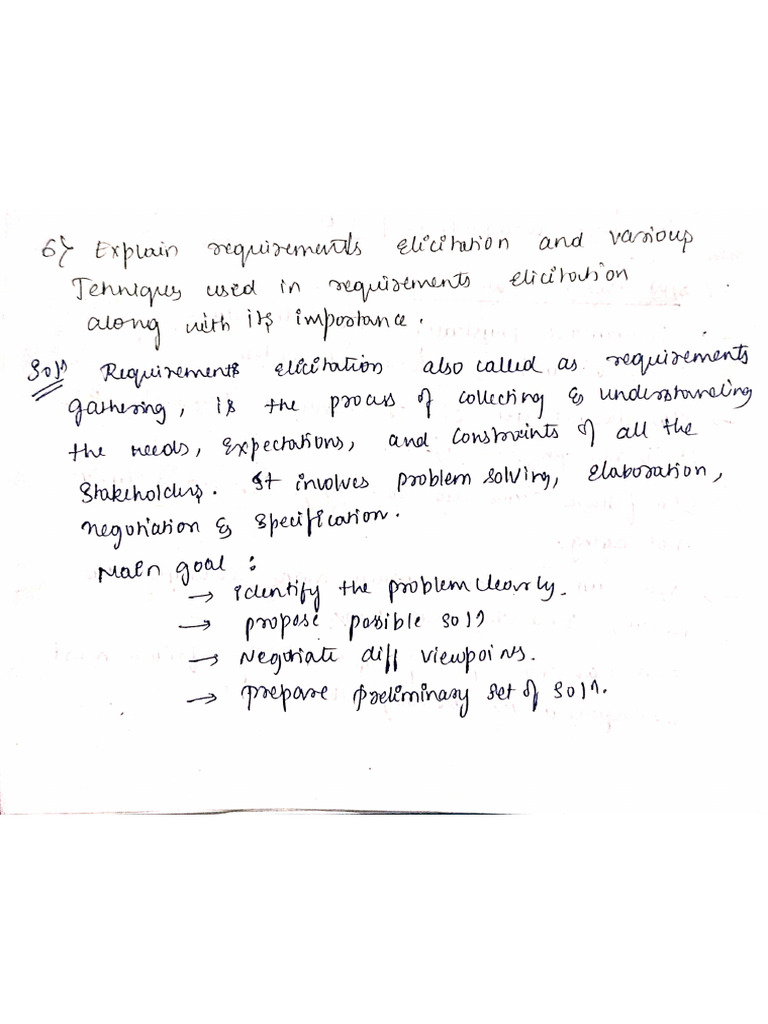 6) Explain requirements elicitation and various
Tehniques used in requirements elicitation
along with its importance.
Soln Requirements elicitation also called as requirements
gathering, is the process of collecting & understanding
the needs, expectations, and constraints of all the
stakeholders. It involves problem solving, elaboration,
negotiation & specification.
Main goal :
→ identify the problem clearly.
→ propose possible soln
→ Negotiate diff viewpoints.
→ prepare preliminary set of soln.